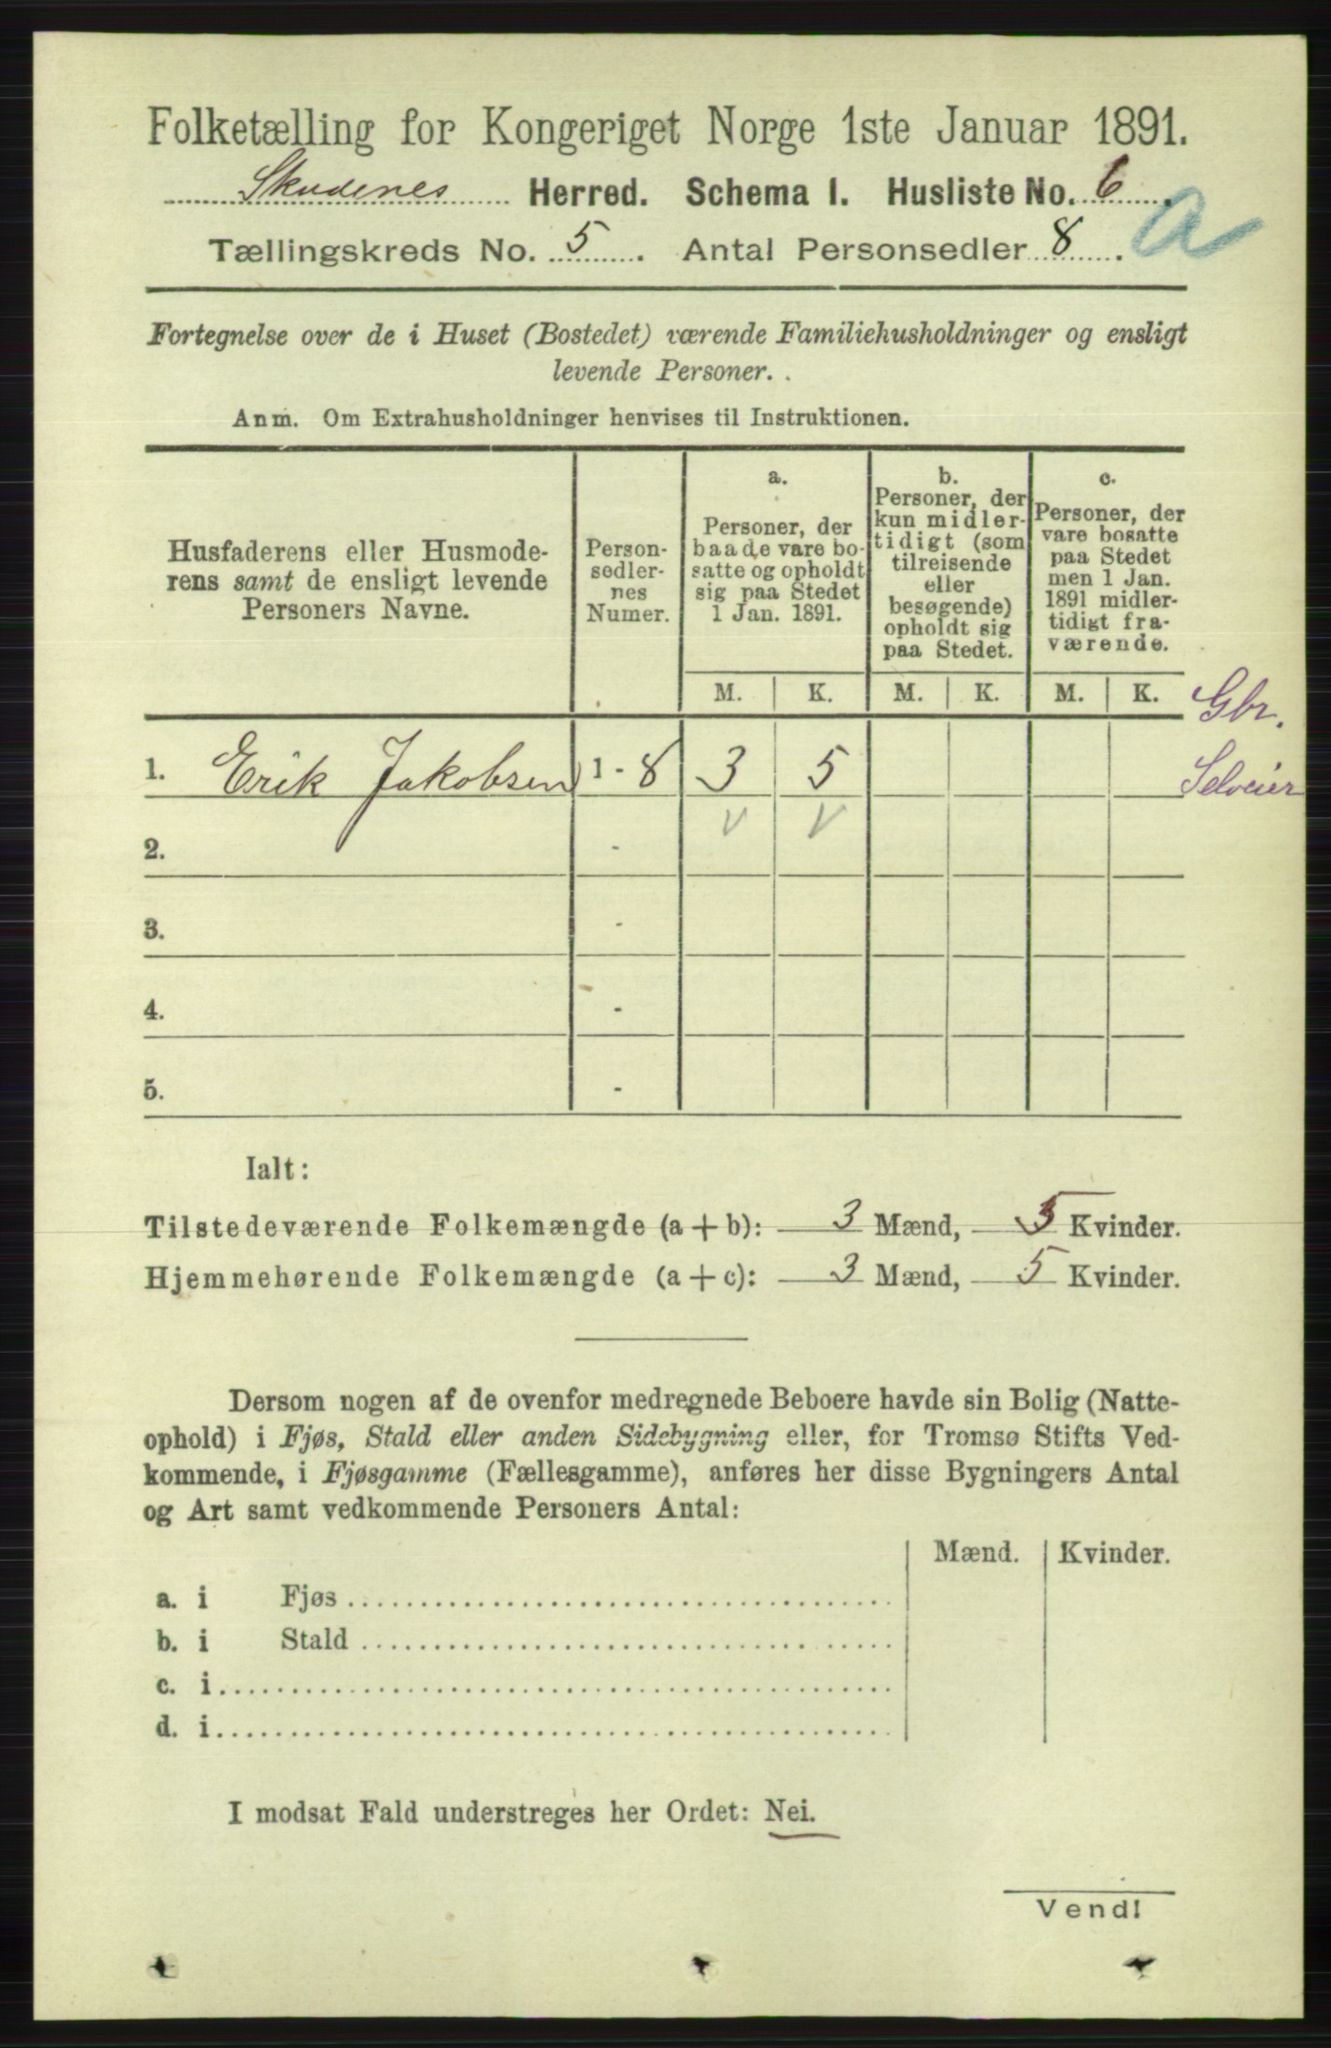 Folketælling for Kongeriget Norge 1ste Januar 1891.
Skudenes Herred. Schema I. Husliste No. 6
Tællingskreds No. 5. Antal Personsedler 8. a
Fortegnelse over de i Huset (Bostedet) værende Familiehusholdninger og ensligt
levende Personer.
Anm. Om Extrahusholdninger henvises til Instruktionen.
Husfaderens eller Husmode-
rens samt de ensligt levende
Personers Navne.
Person-
sedler-
nes
Numer.
a.
Personer, der
baade vare bo-
satte og opholdt
sig paa Stedet
1 Jan. 1891.
b.
Personer, der
kun midler-
tidigt (som
tilreisende
eller
besøgende)
opholdt sig
paa Stedet.
c.
Personer, der
vare bosatte
paa Stedet
men 1 Jan.
1891 midler-
tidigt fra-
værende.
M. K. M. K. M. K.
Gbr.
1. Erik Jakobsen 1 - 8 3 5 Selveier
2. -
3. -
4. -
5. -
Ialt:
Tilstedeværende Folkemængde (a + b): 3 Mænd, 5 Kvinder.
Hjemmehørende Folkemængde (a + c): 3 Mænd, 5 Kvinder.
Dersom nogen af de ovenfor medregnede Beboere havde sin Bolig (Natte-
ophold) i Fjøs, Stald eller anden Sidebygning eller, for Tromsø Stifts Ved-
kommende, i Fjøsgamme (Fællesgamme), anføres her disse Bygningers Antal
og Art samt vedkommende Personers Antal:
Mænd. Kvinder.
a. i Fjøs
b. i Stald
c. i
d. i
I modsat Fald understreges her Ordet: Nei.
Vend!